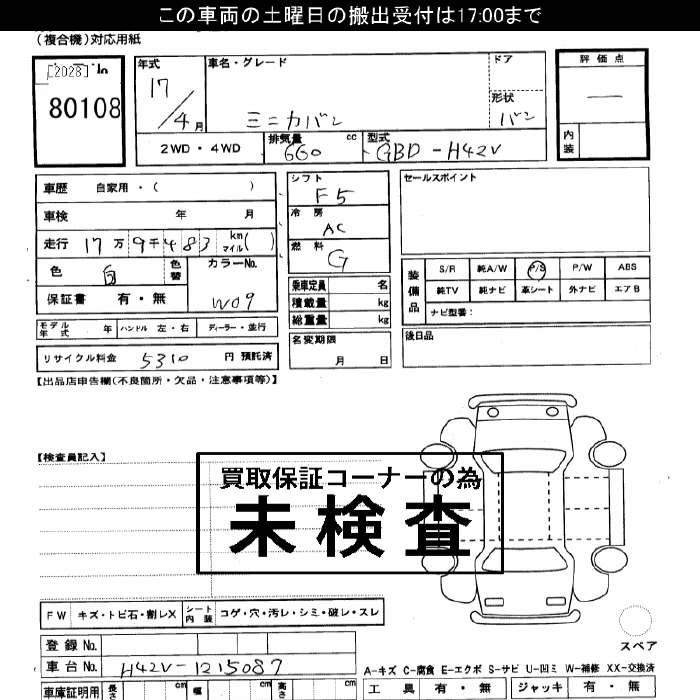 この車両の土曜日の搬出受付は17:00まで
(複合機)対応用紙
[2028] In
80108
年式 17/4月
車名・グレード ミニカバン
ドア
形状 バン
評価点 —
内装
2WD・4WD
排気量 660 cc
型式 GBD-H42V
車歴 自家用・( )
車検 年 月
走行 17万9千483 km マイル( )
色 白 色替
カラーNo. W09
保証書 有・無
モデル年式 年 ハンドル 左・右 ディーラー・並行
リサイクル料金 5310 円 預託済
シフト F5
冷房 AC
燃料 G
乗車定員 名
積載量 kg
総重量 kg
名変期限 月 日
セールスポイント
装備品
S/R 純A/W P/S P/W ABS
純TV 純ナビ 革シート 外ナビ エアB
ナビ型番:
後日品
【出品店申告欄(不良箇所・欠品・注意事項等)】
【検査員記入】
買取保証コーナーの為
未検査
FW キズ・トビ石・割レX シート内装 コゲ・穴・汚レ・シミ・破レ・スレ
登録No.
車台No. H42V-1215087
車庫証明用 長さ cm 幅 cm 高さ cm
スペア
A-キズ C-腐食 E-エクボ S-サビ U-凹ミ W-補修 XX-交換済
工具 有・無 ジャッキ 有・無